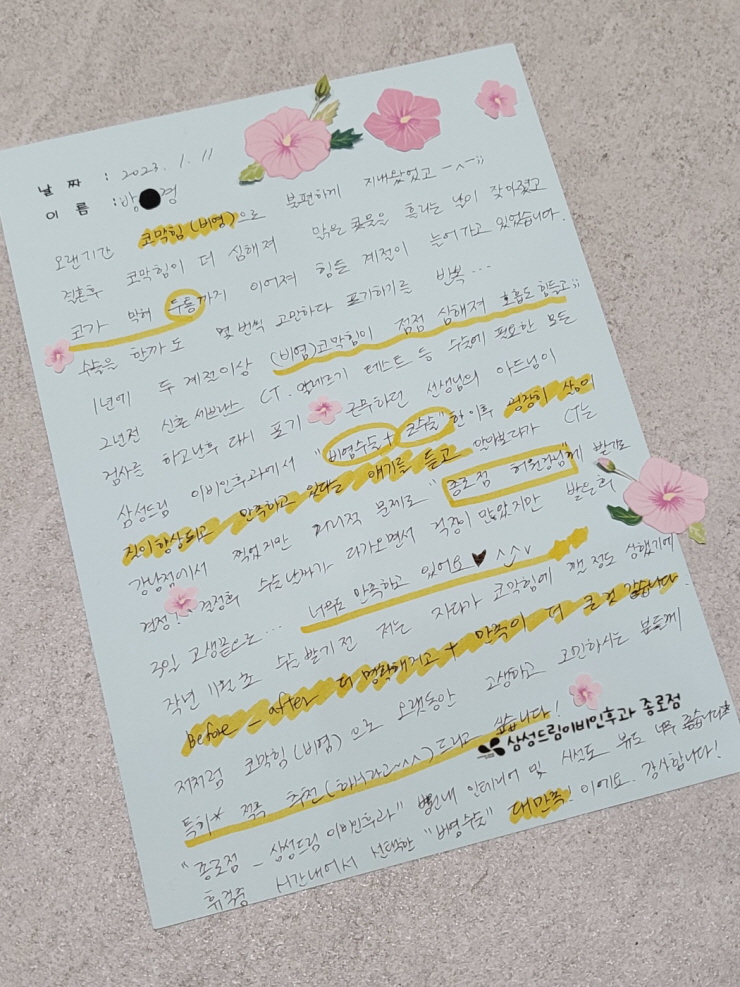 날 짜 : 2023. 1. 11
이 름 : 방 경
오랜기간 코막힘(비염)으로 불편하게 지내왔었고 ㅡㅅㅡ;;
결혼후 코막힘이 더 심해져 맑은 콧물을 흘리는 날이 잦아졌고
코가 막혀 두통까지 이어져 힘든 계절이 늘어가고 있었습니다.
수술을 할까도 몇 번씩 고민하다 포기하기를 반복...
1년에 두 계절이상 (비염)코막힘이 점점 심해져 호흡도 힘들고;;
2년전 신촌 세브란스 CT. 알레르기 테스트 등 수술에 필요한 모든
검사를 하고난후 다시 포기 근무하던 선생님의 아드님이
삼성드림 이비인후과에서 "비염수술 + 코수술" 한 이후 굉장히 삶의
질이 향상되고 만족하고 있다는 얘기를 듣고 알아보다가 CT는
강남점에서 찍었지만 거리적 문제로 "종로점 허원장님"께
결정! 결정후 수술날짜가 다가오면서 걱정이 많았지만
고생끝으로... 너무도 만족하고 있어요♥ ^^
작년 11월초 수술 받기 전 저는 자다가 코막힘에 깰 정도 상했기에
Before - after 더 명확해지고 + 만족이 더 큰 것 같습니다.
저처럼 코막힘(비염)으로 오랫동안 고생하고 고민하시는 분들께
특히* 적극 추천(하시라고~^^)드리고 싶습니다!
삼성드림이비인후과 종로점
"종로점 - 삼성드림 이비인후과" 병원내 인테리어 및 시설도 뷰도 너무 좋습니다
휴직중 시간내에서 선택한 "비염수술" 대만족! 이에요. 감사합니다!